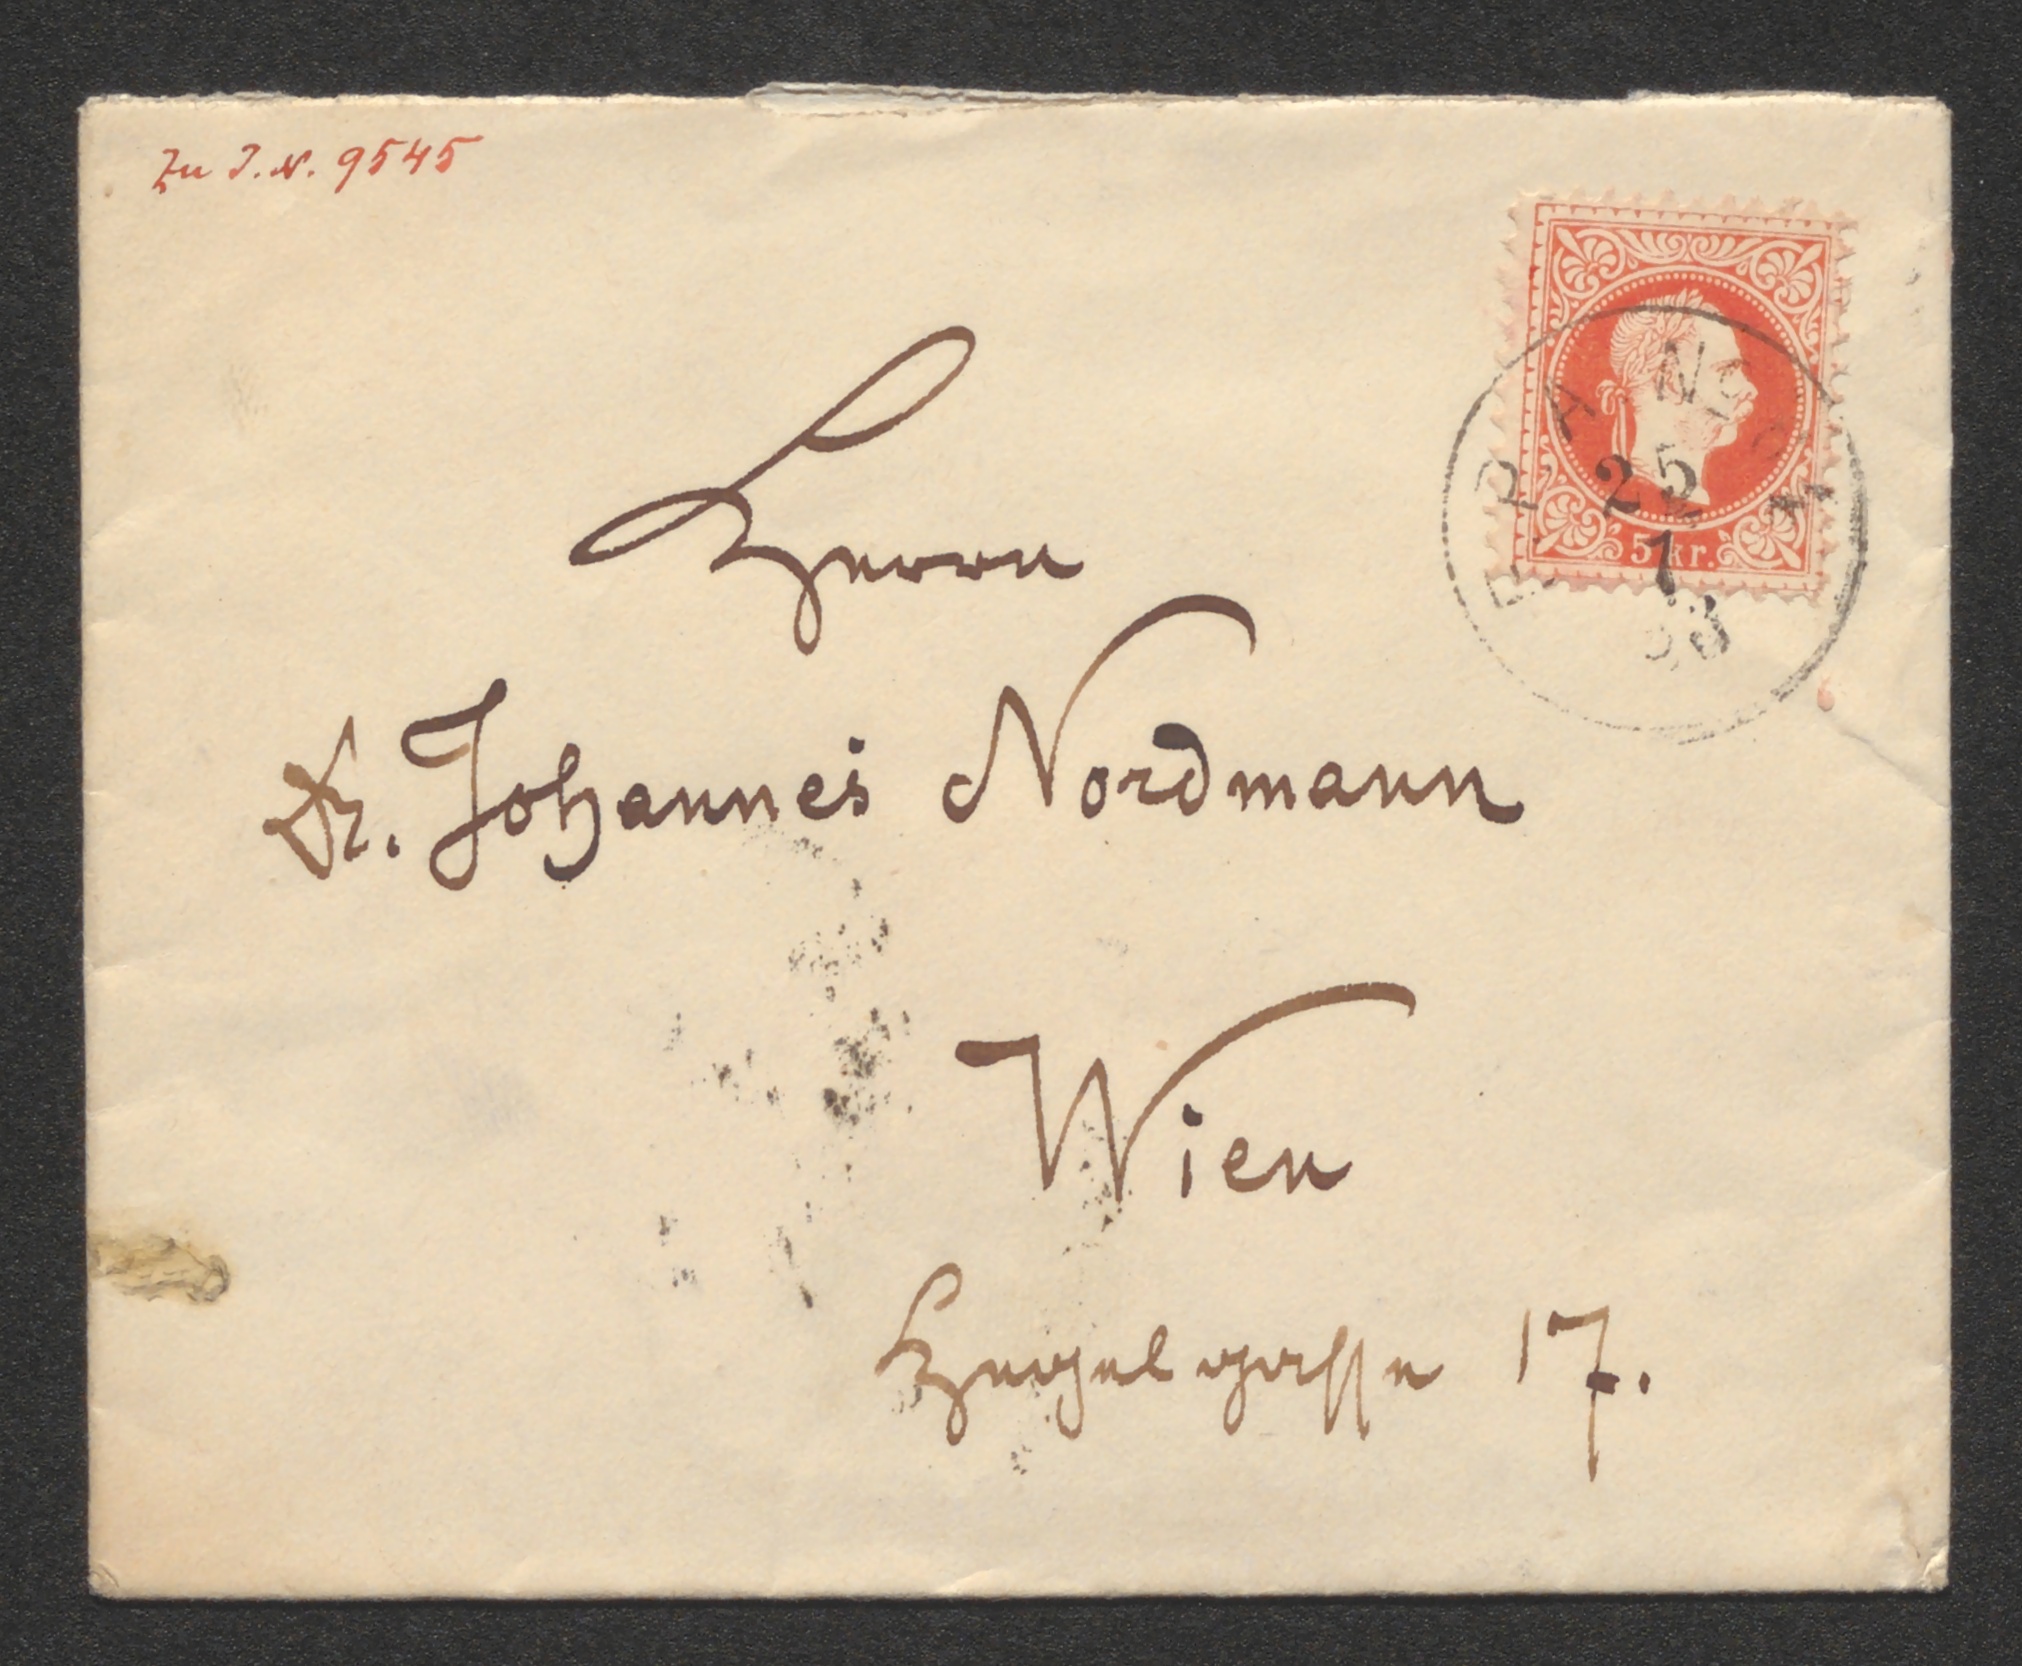 Zu I.N. 9545
5 kr.
25
7
83
Herrn
Dr. Johannes Nordmann
Wien
Hegelgasse 17.